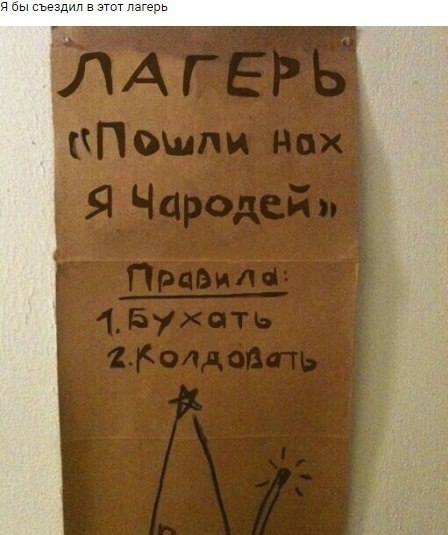 Я бы съездил в этот лагерь
ЛАГЕРЬ
«Пошли нах
Я Чародей»
Правила:
1. Бухать
2. Колдовать